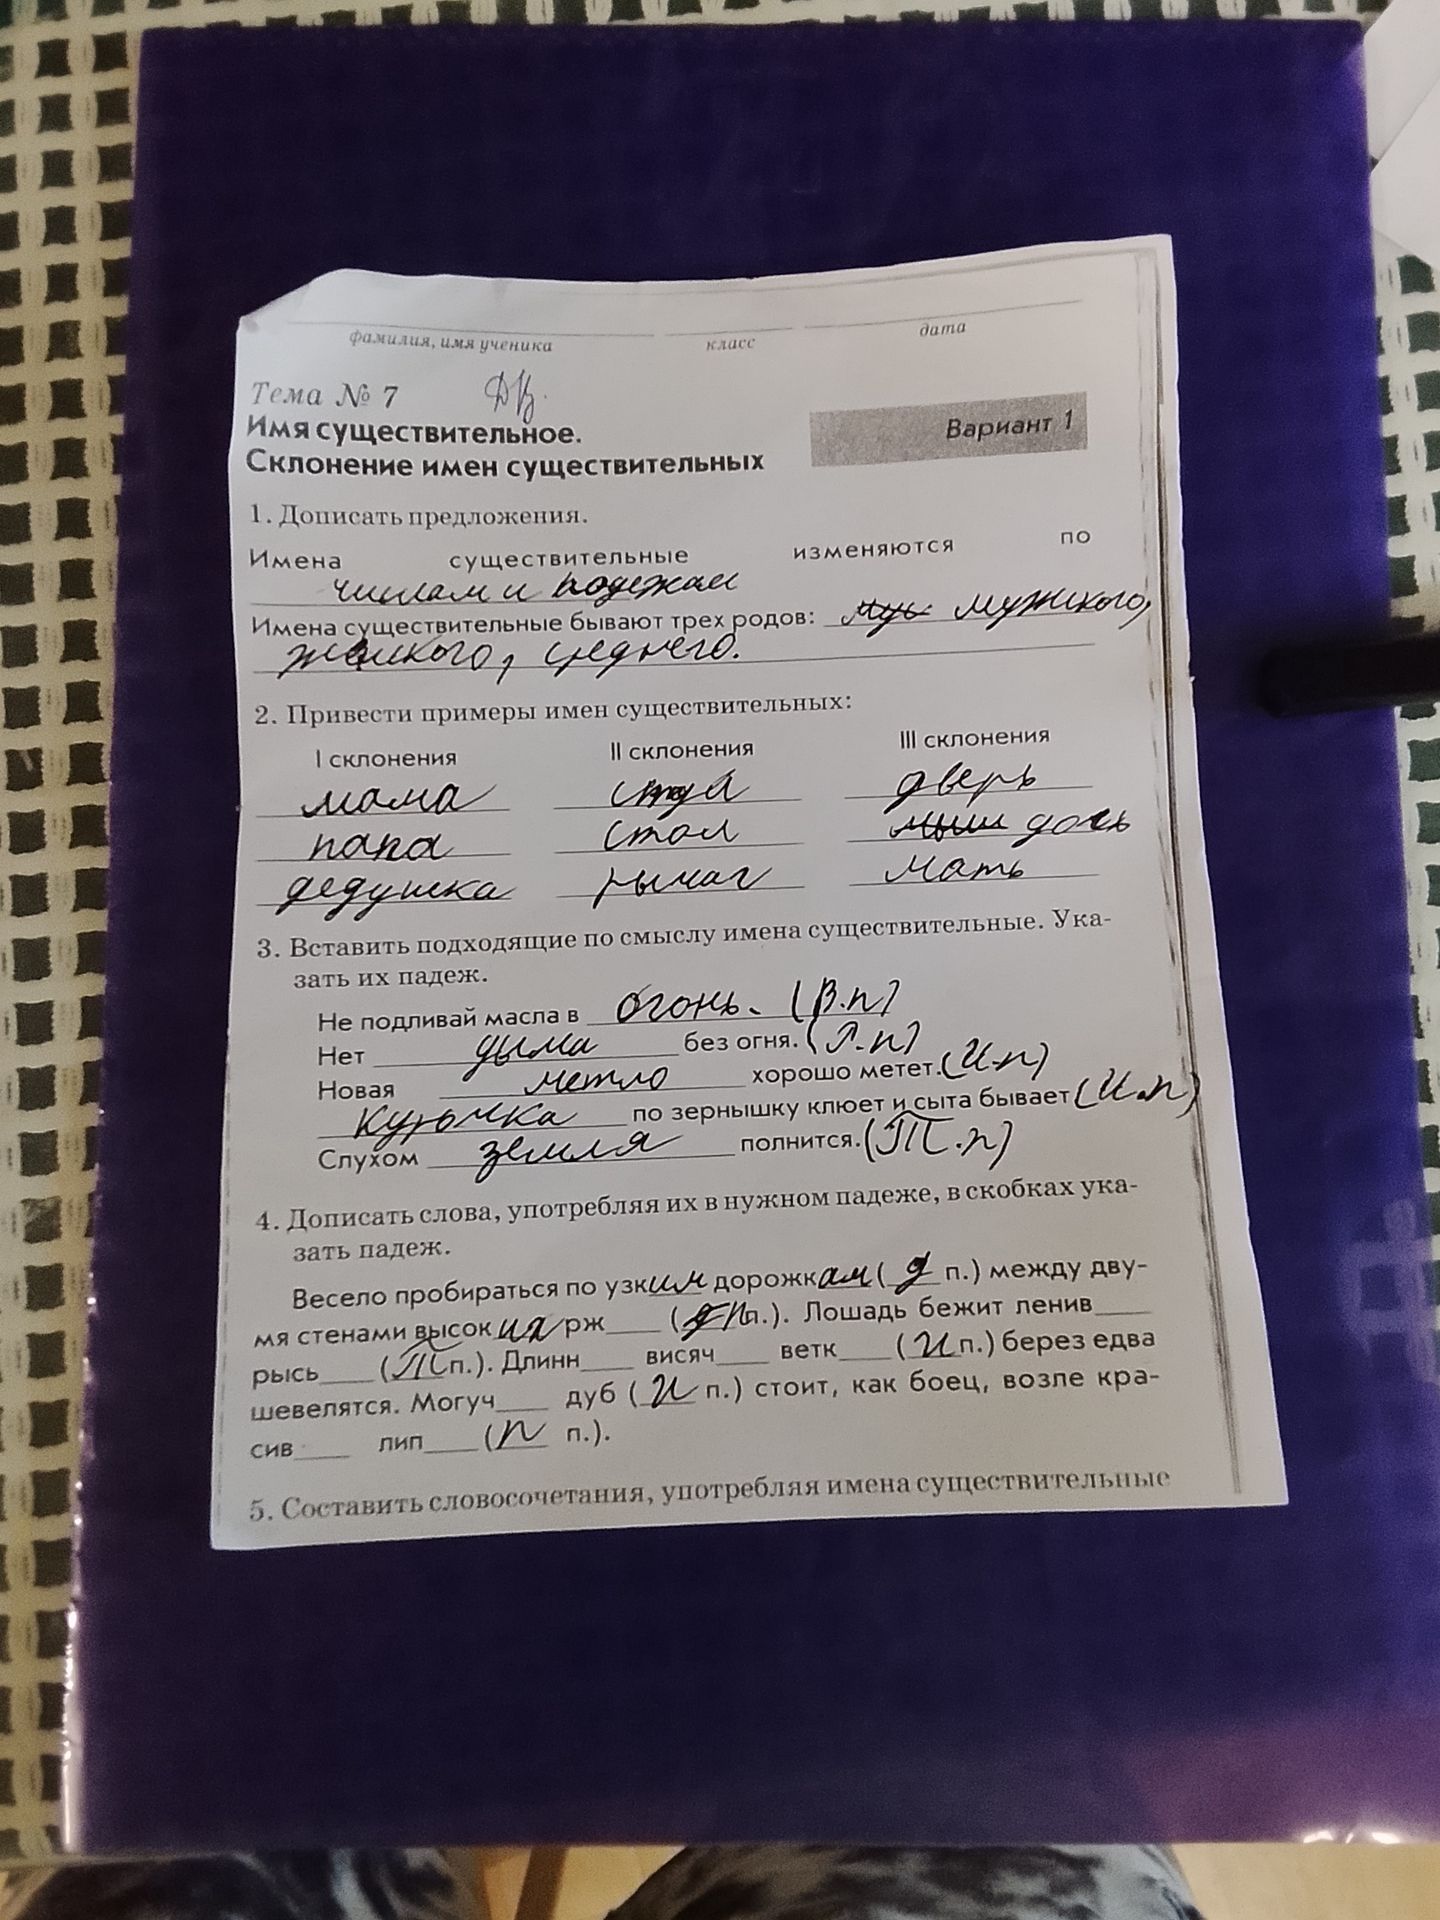 фамилия, имя ученика класс дата
Тема № 7 ДВ.
Имя существительное.
Вариант 1
Склонение имен существительных
1. Дописать предложения.
Имена существительные изменяются по
числам и подежам
Имена существительные бывают трех родов: муь мужского,
женского, среднего.
2. Привести примеры имен существительных:
I склонения II склонения III склонения
мама стул дверь
папа стол мыш дочь
дедушка рычаг мать
3. Вставить подходящие по смыслу имена существительные. Ука-
зать их падеж.
Не подливай масла в огонь. (В.п)
Нет дыма без огня. (Р.п)
Новая метло хорошо метет. (И.п)
Курочка по зернышку клюет и сыта бывает (И.п)
Слухом земля полнится. (Т.п)
4. Дописать слова, употребляя их в нужном падеже, в скобках ука-
зать падеж.
Весело пробираться по узким дорожкам (д п.) между дву-
мя стенами высоких рж____ (п.). Лошадь бежит ленив____
рысь____ (Т п.). Длинн____ висяч____ ветк____ (И п.) берез едва
шевелятся. Могуч____ дуб (И п.) стоит, как боец, возле кра-
сив____ лип____ (п п.).
5. Составить словосочетания, употребляя имена существительные